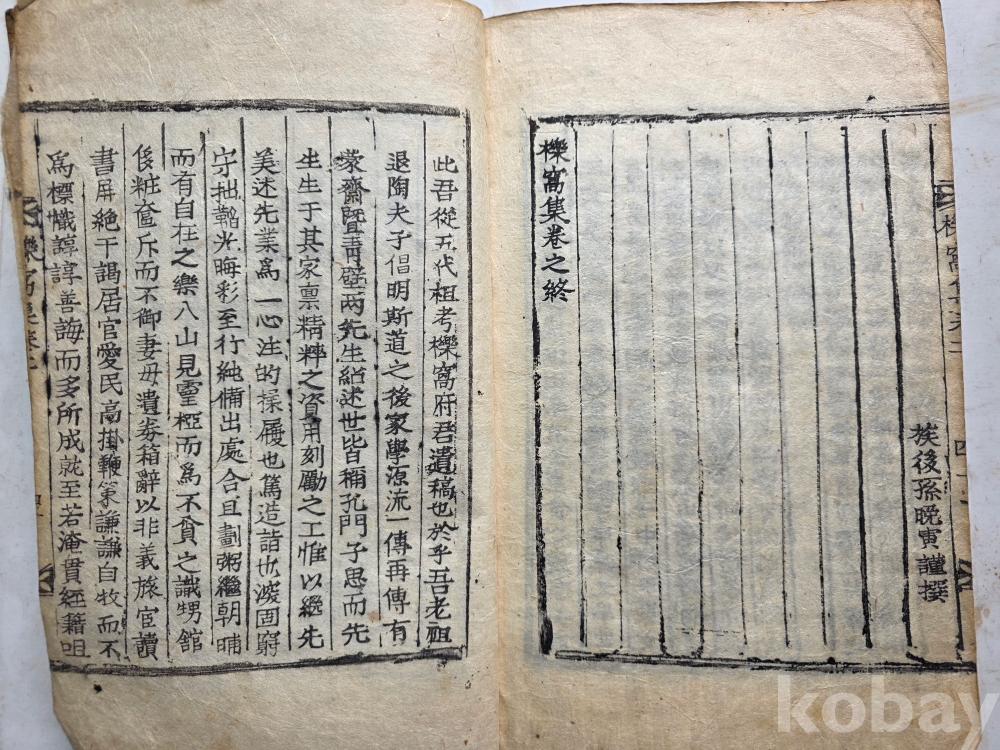 族後孫晩寅謹撰
櫟窩集卷之終
此吾從五代祖考櫟窩府君遺稿也於乎吾老祖
退陶夫子倡明斯道之後家學源流一傳再傳有
蒙齋曁靑壁兩先生紹述世皆稱孔門子思而先
生生于其家禀精粹之資用刻勵之工惟以繼先
美述先業爲一心注的操履也篤造詣也深固窮
守拙韜光晦彩至行純備出處合且劃粥繼朝晡
而有自在之樂入山見靈椏而爲不貪之識甥舘
侈粧奩斥而不御妻母遺券箱辭以非義旅宦讀
書屛絶干謁居官愛民高掛鞭箠謙謙自牧而不
爲標幟諄諄善誨而多所成就至若淹貫經籍咀
kobay